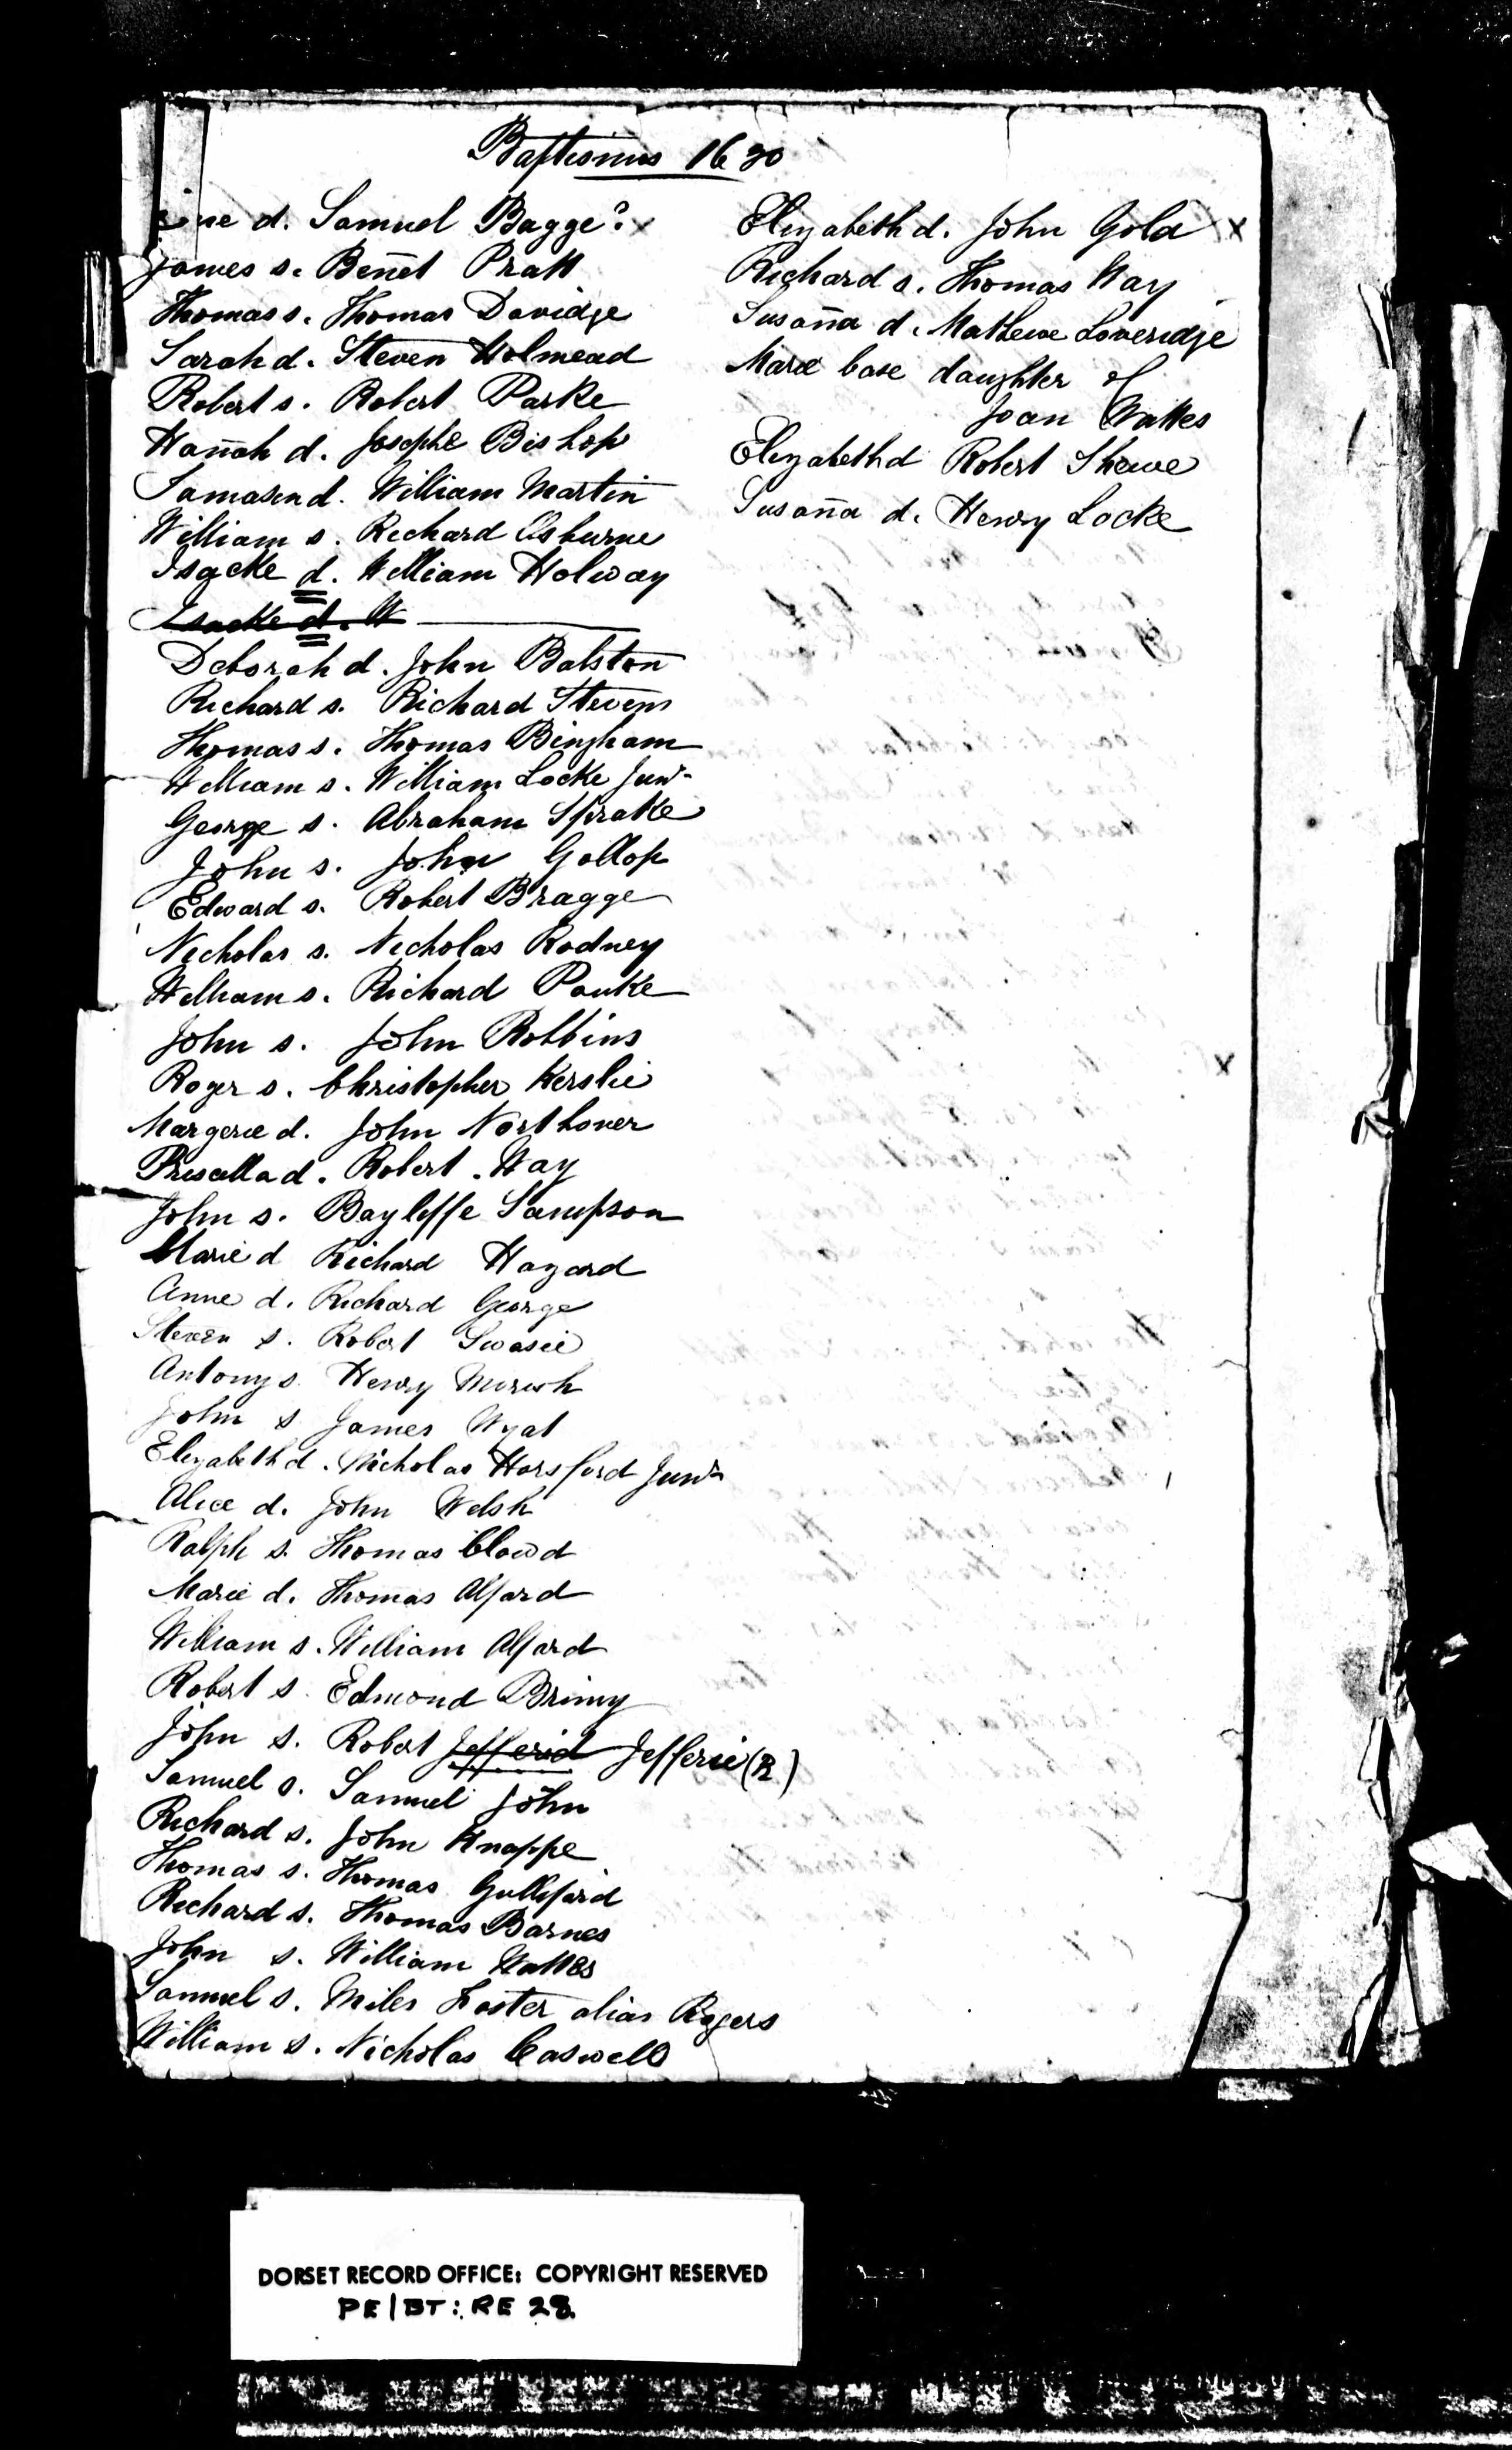 Baptisms 1630
d. Samuel Bagge? x
James s. Beñet Pratt
Thomas s. Thomas Davidge
Sarah d. Steven Holmead
Robert s. Robert Parke
Hañah d. Josephe Bishop
Tamasen d. William Martin
William s. Richard Osburne
Isacke d. William Holway
Isacke d. W
Deborah d. John Balston
Richard s. Richard Stevens
Thomas s. Thomas Bingham
William s. William Locke Junr
George s. Abraham Sprake
John s. John Gollop
Edward s. Robert Bragge
Nicholas s. Nicholas Rodney
William s. Richard Pauke
John s. John Robbins
Roger s. Christopher Kerslie
Margerie d. John Northover
Priscilla d. Robert Way
John s. Bayliffe Sampson
Marie d Richard Hazard
Anne d. Richard George
Steven s. Robert Swasie
Antony s. Henry
John s James Wyat
Elizabeth d. Nicholas Horsford Junr
Alice d. John Welsh
Ralph s. Thomas Clowd
Marie d. Thomas Alford
William s. William Alford
Robert s. Edmond
John s. Robert Jefferid Jefferie (R)
Samuel s. Samuel John
Richard s. John Knappe
Thomas s. Thomas Gulliford
Richard s. Thomas Barnes
John s. William Wattes
Samuel s. Miles Foster alias Rogers
William s. Nicholas Caswell
Elizabeth d. John Gold x
Richard s. Thomas Way
Susaña d. Mathewe Loveridge
Marie base daughter of
Joan Wattes
Elizabeth d Robert Shewe
Susaña d. Henry Locke
x
DORSET RECORD OFFICE: COPYRIGHT RESERVED
PE/BT: RE 28.